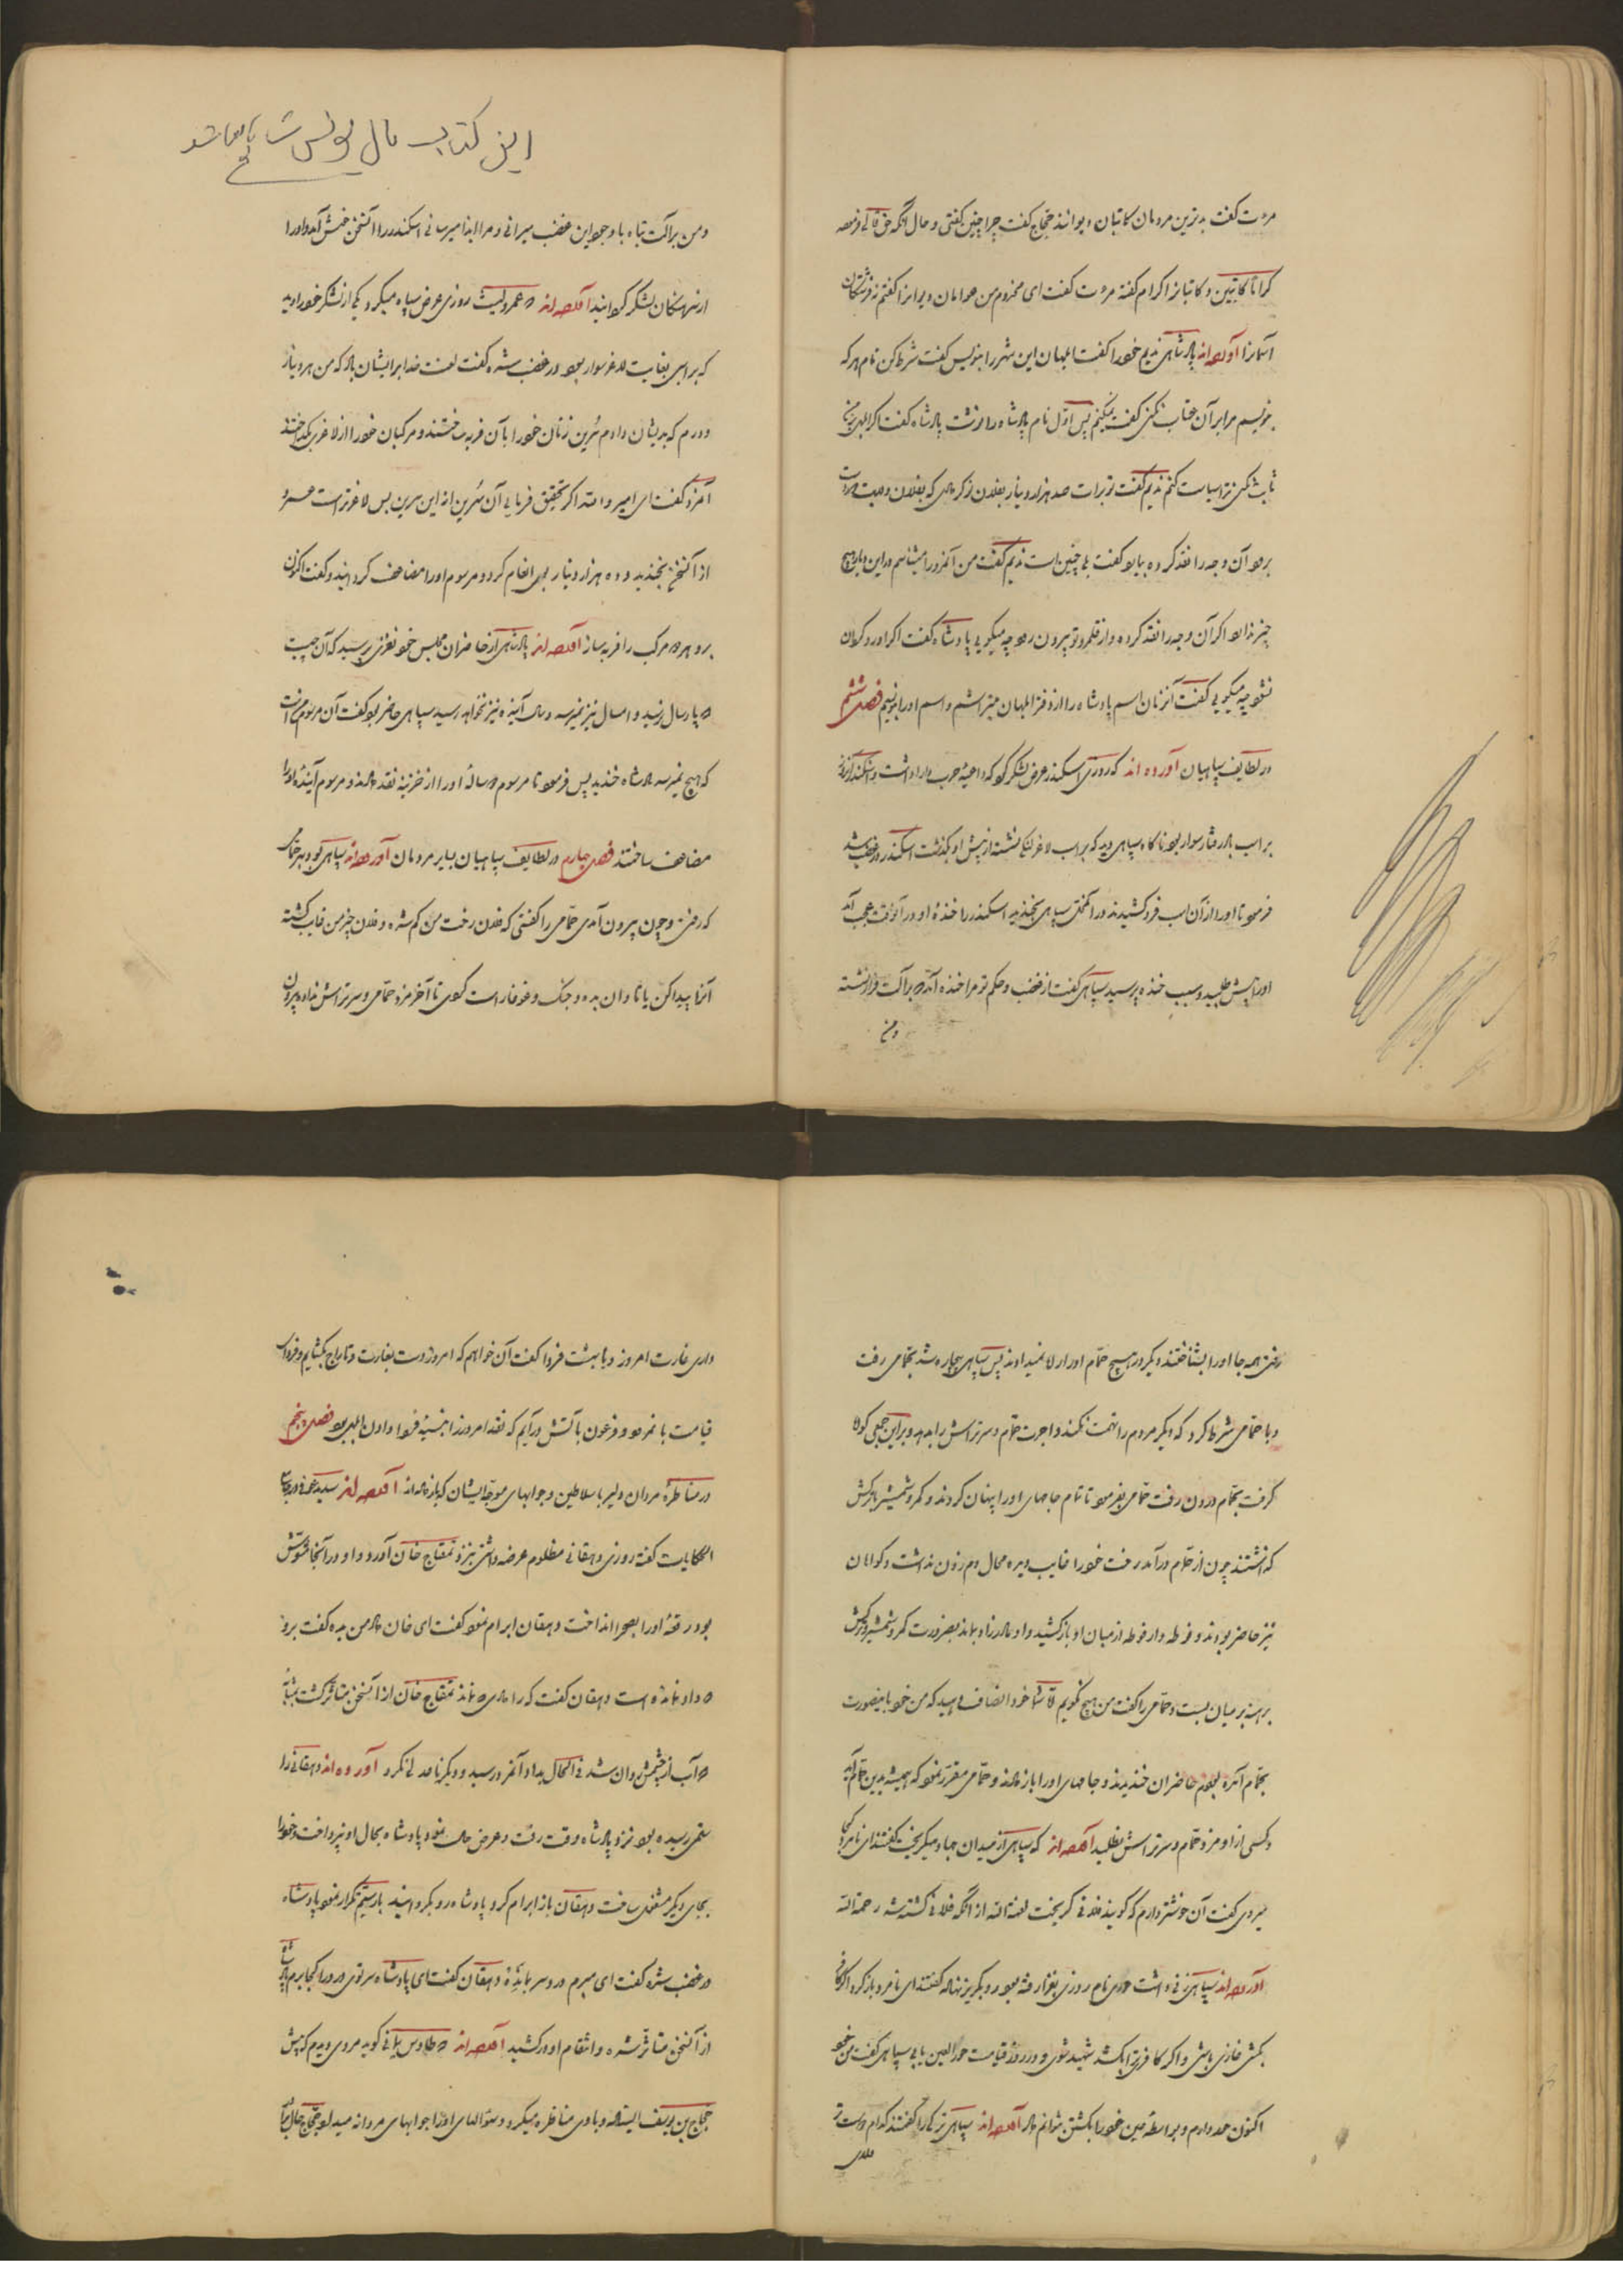 مزد گفت بدترین مردمان کاتبان دیوانند حجاج گفت چرا چنین گفتی و حال آنکه حق تعالی فرموده
کراماً کاتبین و کاتبانرا اکرام گفته مزد گفت ای مخدوم من عوانان دیوانرا گفتم نه فرشتگان
آسمانرا آورده‌اند پادشاهی ندیم خود را گفت ابلهان این شهر را بنویس گفت شرط کن نام هر که
بنویسم مرا بر آن عتاب نکنی گفت نکنم پس اول نام پادشاه را نوشت پادشاه گفت اگر ابلهی بر من
ثابت نکنی ترا سیاست کنم ندیم گفت تو برات صد هزار دینار بفلان نوکر دادی که بفلان ولایت
برود آن وجه را نقد کرده بیاید گفت بلی چنین است ندیم گفت من آنمرد را میشناسم در این دیار هیچ
چیز ندارد اگر آن وجه را نقد کرده و از قلمرو تو بیرون رود چه میگویی پادشاه گفت اگر او رو گردان
نشود چه میگویی گفت آنزمان اسم پادشاه را از دفتر ابلهان میتراشم و اسم او را بنویسم فصل ششم
در لطایف سپاهیان آورده اند که روزی اسکندر عرض لشکر میکرد که داعیهٔ حرب دارا داشت و اسکندر
بر اسب بادرفتار سوار بود ناگاه سپاهی دید که بر اسب لاغر لنگ نشسته از پیش او بگذشت اسکندر در غضب شد
فرمود تا او را از آن اسب فرو کشیدند در آنمحل سپاهی بخندید اسکندر را خندهٔ او در آنوقت عجب آمد
او را پیش طلبید و سبب خنده پرسید سپاهی گفت از غضب و حکم تو مرا خنده آمد که بر آلت فرار نشسته
و من
این کتاب مال یونس
و من بر آلت ثبات با وجود این غضب میرانی و مرا ایذا میرسانی اسکندر را آنسخن خوش آمد و او را
از سرهنگان لشکر گردانید آورده‌اند که عمرو لیث روزی عرض سپاه میکرد یکی از لشکر خود را دید
که بر اسبی بغایت لاغر سوار بود در غضب شده گفت لعنت خدا بر ایشان باد که من هر دینار
و درم که بدیشان دادم سرین زنان خود را بآن فربه ساختند و مرکبان خود را از لاغری بگداختند
آنمرد گفت ای امیر والله اگر تحقیق فرمایی آن سرین از این سرین بس لاغرتر است عمرو
از آنسخن بخندید و ده هزار دینار بوی انعام کرد و مرسوم او را مضاعف گردانید و گفت اکنون
برو هر دو مرکب را فربه ساز آورده‌اند پادشاهی از حاضران مجلس خود لغزی پرسید که آن چیست
که پارسال نرسید و امسال نیز نمیرسد و سال آینده نیز نخواهد رسید سپاهی حاضر بود گفت آن مرسوم من است
که هیچ نمیرسد پادشاه خندید پس فرمود تا مرسوم دو ساله او را از خزینه نقد دادند و مرسوم آینده او را
مضاعف ساختند فصل چهارم در لطایف سپاهیان بسایر مردمان آورده‌اند سپاهی بود بهر حمام
که رفتی و چون بیرون آمدی حمامی را گفتی که فلان رخت من گم شده و فلان چیز من غایب گشته
آنرا پیدا کن یا تاوان بده و جنگ و غوغا راست کردی تا آخر مزد حمامی و سرتراش نداده بیرون
رفتی همه جا او را بشناختند دیگر در هیچ حمام او را راه نمیدادند پس سپاهی بیچاره شد بحمامی رفت
و با حمامی شرط کرد که دیگر مردم را تهمت نکند و اجرت حمام و سرتراش را بدهد و بر این جمعی گواه
گرفت بحمام درون رفت حمامی بفرمود تا تمام جامهای او را پنهان کردند و کمر و شمشیر و ترکش
گذاشتند چون از حمام درآمد رخت خود را غایب دید محال دم زدن نداشت و گواهان
نیز حاضر بودند و فوطه دار فوطه از میان او باز کشید و او مادرزاد بماند بضرورت کمر و شمشیر و ترکش
برهنه بر میان بست و حمامی را گفت من هیچ نگویم اما شما خود انصاف دهید که من خود باینصورت
بحمام آمده بودم حاضران خندیدند و جامهای او را باز دادند و حمامی مقرر نمود که همیشه بدین حمام آید
و کسی از او مزد حمام و سرتراش نطلبد آورده‌اند که سپاهی از میدان جهاد میگریخت گفتند ای نامرد کجا
میروی گفت آن خوشتر دارم که گویند فلانی گریخت لعنه الله از آنکه فلانی کشته شد رحمه الله
آورده‌اند سپاهی زنی داشت حوری نام روزی بغزا رفته بود رو بگریز نهاد گفتند ای نامرد باز گرد اگر کافر
بکشی غازی باشی و اگر کافری ترا بکشد شهید شوی و در روز قیامت حور العین یابی سپاهی گفت من خود
اکنون حور دارم و بواسطهٔ عین خود را بکشتن نتوانم داد آورده‌اند سپاهی ترکی را گفتند کدام دوست‌تر
داری
داری غارت امروز و یا بهشت فردا گفت آن خواهم که امروز دست بغارت و تاراج بگشایم و فردای
قیامت با نمرود و فرعون بآتش درآیم که نقد امروز را بنسیهٔ فردا دادن ابلهی بود فصل پنجم
در مناظرهٔ مردان دلیر با سلاطین و جوابهای موجه ایشان که باز داده‌اند آورده‌اند سدید عوفی در جامع
الحکایات گفته روزی دهقانی مظلوم عرضه داشتی نزد تمغاج خان آورد و او در آنجا مشوش
بود رقعهٔ او را بصحرا انداخت دهقان ابرام نمود گفت ای خان داد من بده گفت برو
که داد نمانده است دهقان گفت که را دادی که نماند تمغاج خان از آنسخن متاثر گشت بمثابهٔ
که آب از چشمش روان شد فی الحال بداد آنمرد رسید و دیگر ناعدلی نکرد آورده اند دهقانی را
ستمی رسیده بود نزد پادشاه وقت رفت و عرض حال نمود پادشاه بحال او نپرداخت و خود را
بجای دیگر مشغول ساخت دهقان باز ابرام کرد پادشاه رو بگردانید بار سیم تکرار نمود پادشاه
در غضب شده گفت ای مبرم دردسر ما مده دهقان گفت ای پادشاه سر تویی درد را کجا برم پادشاه
از آنسخن متاثر شده و انتقام او در کشید آورده‌اند که طاوس یمانی گوید مردی دیدم که پیش
حجاج بن یوسف ایستاده و با وی مناظره میکرد و سؤالهای او را جوابهای مردانه میداد حجاج